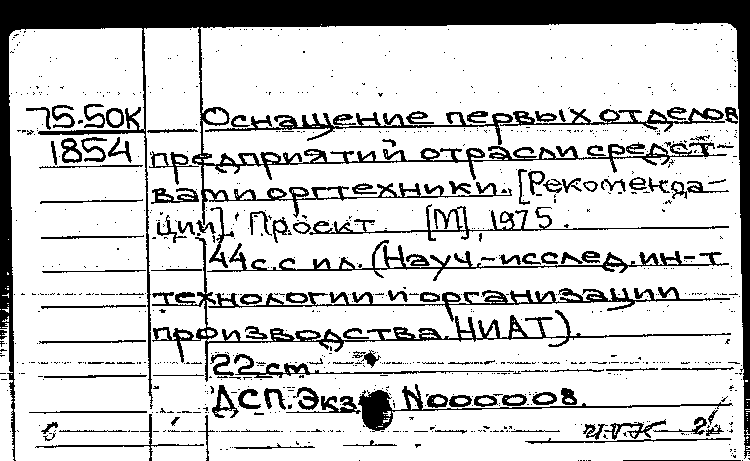 75.50К Оснащение первых отделов
1854 предприятий отрасли средст-
вами оргтехники. [Рекоменда-
ции]. Проект. [М], 1975.
44с. с ил. (Науч.-исслед. ин-т
технологии и организации
производства. НИАТ).
22 см.
ДСП. Экз. N000008.